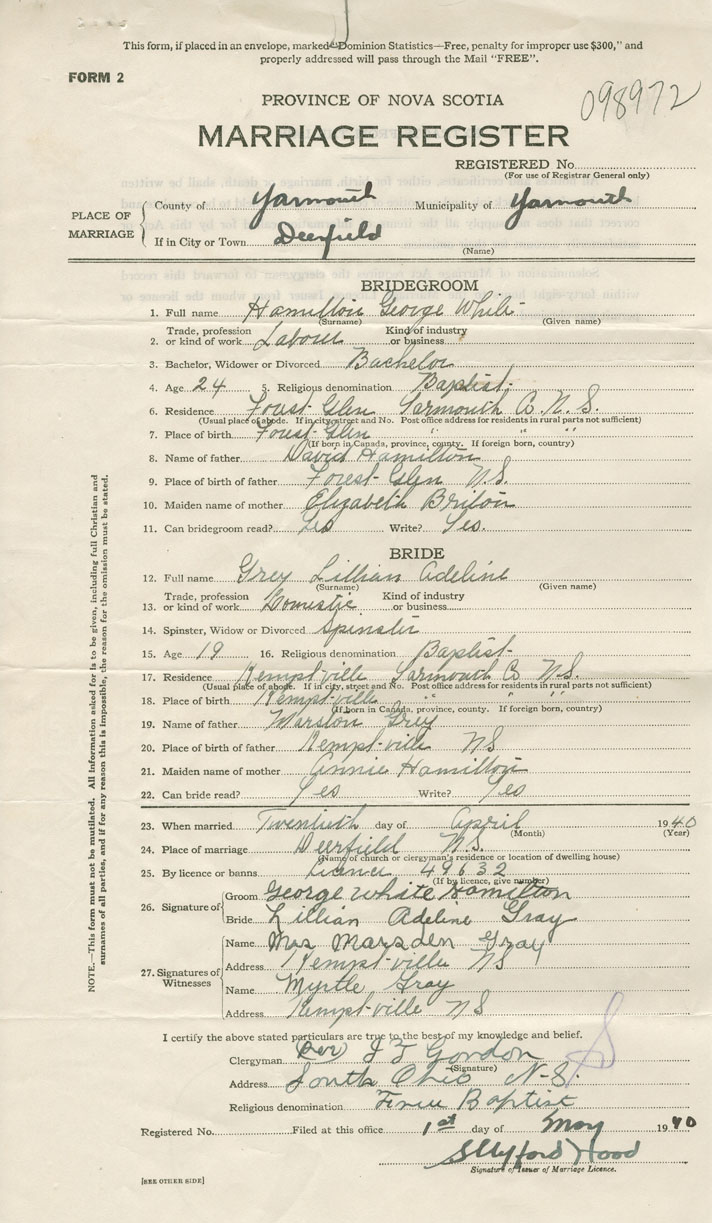 This form, if placed in an envelope, marked "Dominion Statistics—Free, penalty for improper use $300," and
properly addressed will pass through the Mail "FREE".
FORM 2
098972
PROVINCE OF NOVA SCOTIA
MARRIAGE REGISTER
REGISTERED No.
(For use of Registrar General only)
PLACE OF MARRIAGE
County of Yarmouth Municipality of Yarmouth
If in City or Town Deerfield
(Name)
BRIDEGROOM
1. Full name Hamilton George White
(Surname) (Given name)
Trade, profession Kind of industry
2. or kind of work Labour or business
3. Bachelor, Widower or Divorced Bachelor
4. Age 24 5. Religious denomination Baptist
6. Residence Forest Glen Yarmouth Co. N. S.
(Usual place of abode. If in city, street and No. Post office address for residents in rural parts not sufficient)
7. Place of birth Forest Glen " " "
(If born in Canada, province, county. If foreign born, country)
8. Name of father David Hamilton
9. Place of birth of father Forest Glen N.S.
10. Maiden name of mother Elizabeth Briton
11. Can bridegroom read? Yes Write? Yes.
BRIDE
12. Full name Grey Lillian Adeline
(Surname) (Given name)
Trade, profession Kind of industry
13. or kind of work Domestic or business
14. Spinster, Widow or Divorced Spinster
15. Age 19 16. Religious denomination Baptist
17. Residence Kemptville Yarmouth Co N.S.
(Usual place of abode. If in city, street and No. Post office address for residents in rural parts not sufficient)
18. Place of birth Kemptville " " "
(If born in Canada, province, county. If foreign born, country)
19. Name of father Marston Grey
20. Place of birth of father Kemptville NS
21. Maiden name of mother Annie Hamilton
22. Can bride read? Yes Write? Yes
23. When married Twentieth day of April 1940
(Month) (Year)
24. Place of marriage Deerfield N.S.
(Name of church or clergyman's residence or location of dwelling house)
25. By licence or banns Licence 49632
(If by licence, give number)
26. Signature of
Groom George White Hamilton
Bride Lillian Adeline Gray
27. Signatures of Witnesses
Name Mrs Marsden Gray
Address Kemptville NS
Name Myrtle Gray
Address Kemptville NS
I certify the above stated particulars are true to the best of my knowledge and belief.
Clergyman (Rev) J F Gordon
(Signature)
Address South Ohio N.S.
Religious denomination Free Baptist
Registered No. Filed at this office 1st day of May 1940
Hood
Signature of Issuer of Marriage Licence.
[SEE OTHER SIDE]
NOTE.—This form must not be mutilated. All information asked for is to be given, including full Christian and
surnames of all parties, and if for any reason this is impossible, the reason for the omission must be stated.